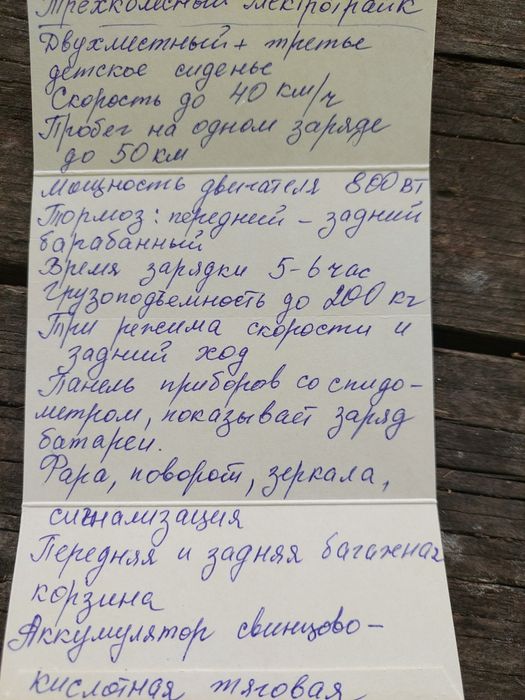 Трехколесный электротрайк
Двухместный + третье
детское сиденье
Скорость до 40 км/ч
Пробег на одном заряде
до 50 км
Мощность двигателя 800 вт
Тормоз: передний - задний
барабанный
Время зарядки 5-6 час
Грузоподъемность до 200 кг
Три режима скорости и
задний ход
Панель приборов со спидо-
метром, показывает заряд
батареи.
Фара, поворот, зеркала,
сигнализация
Передняя и задняя багажная
корзина
Аккумулятор свинцово-
кислотная тяговая